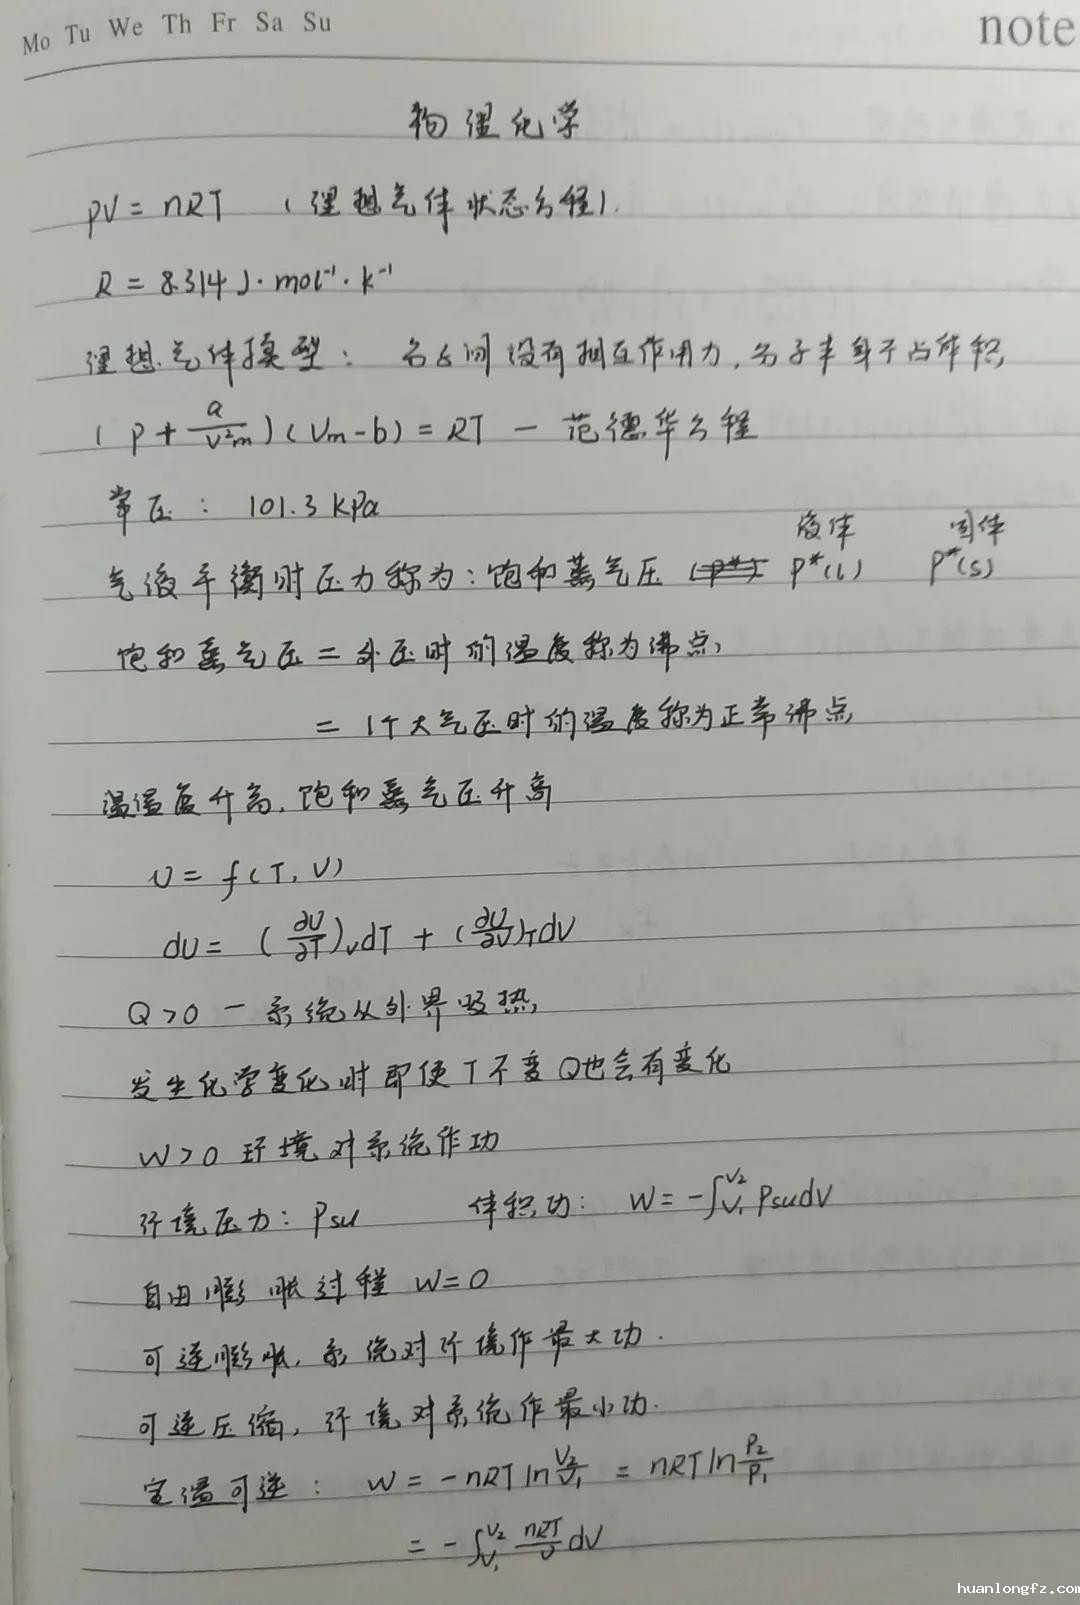 Mo Tu We Th Fr Sa Su
note
物理化学
pV = nRT (理想气体状态方程).
R = 8.314 J·mol⁻¹·k⁻¹
理想气体模型: 分子间没有相互作用力, 分子本身不占体积
(p + a/V²m)(Vm-b) = RT — 范德华方程
常压: 101.3 kPa
液体 固体
气液平衡时压力称为: 饱和蒸气压 (p*) p*(l) p*(s)
饱和蒸气压 = 外压时的温度称为沸点,
= 1个大气压时的温度称为正常沸点
温温度升高, 饱和蒸气压升高
U = f(T, V)
dU = (∂U/∂T)ᵥdT + (∂U/∂V)ₜdV
Q>0 — 系统从外界吸热,
发生化学变化时即使T不变Q也会有变化
W>0 环境对系统作功
环境压力: Psu 体积功: W = -∫V₁V₂ PsudV
自由膨胀过程 W=0
可逆膨胀, 系统对环境作最大功.
可逆压缩, 环境对系统作最小功.
定温可逆: W = -nRT ln V₂/V₁ = nRT ln P₂/P₁
= -∫V₁V₂ nRT/V dV
huanlongfz.com